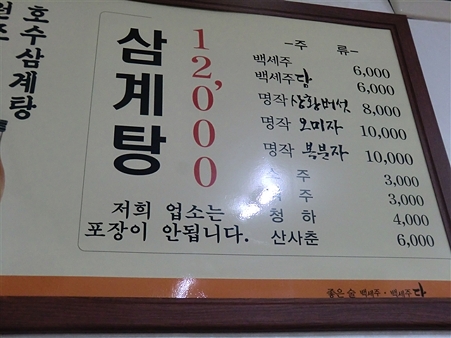 호수삼계탕
삼계탕
12,000
저희 업소는
포장이 안됩니다.
-주 류-
백세주 6,000
백세주담 6,000
명작 상황버섯 8,000
명작 오미자 10,000
명작 복분자 10,000
주 3,000
주 3,000
청 하 4,000
산사춘 6,000
좋은 술 백세주 · 백세주담